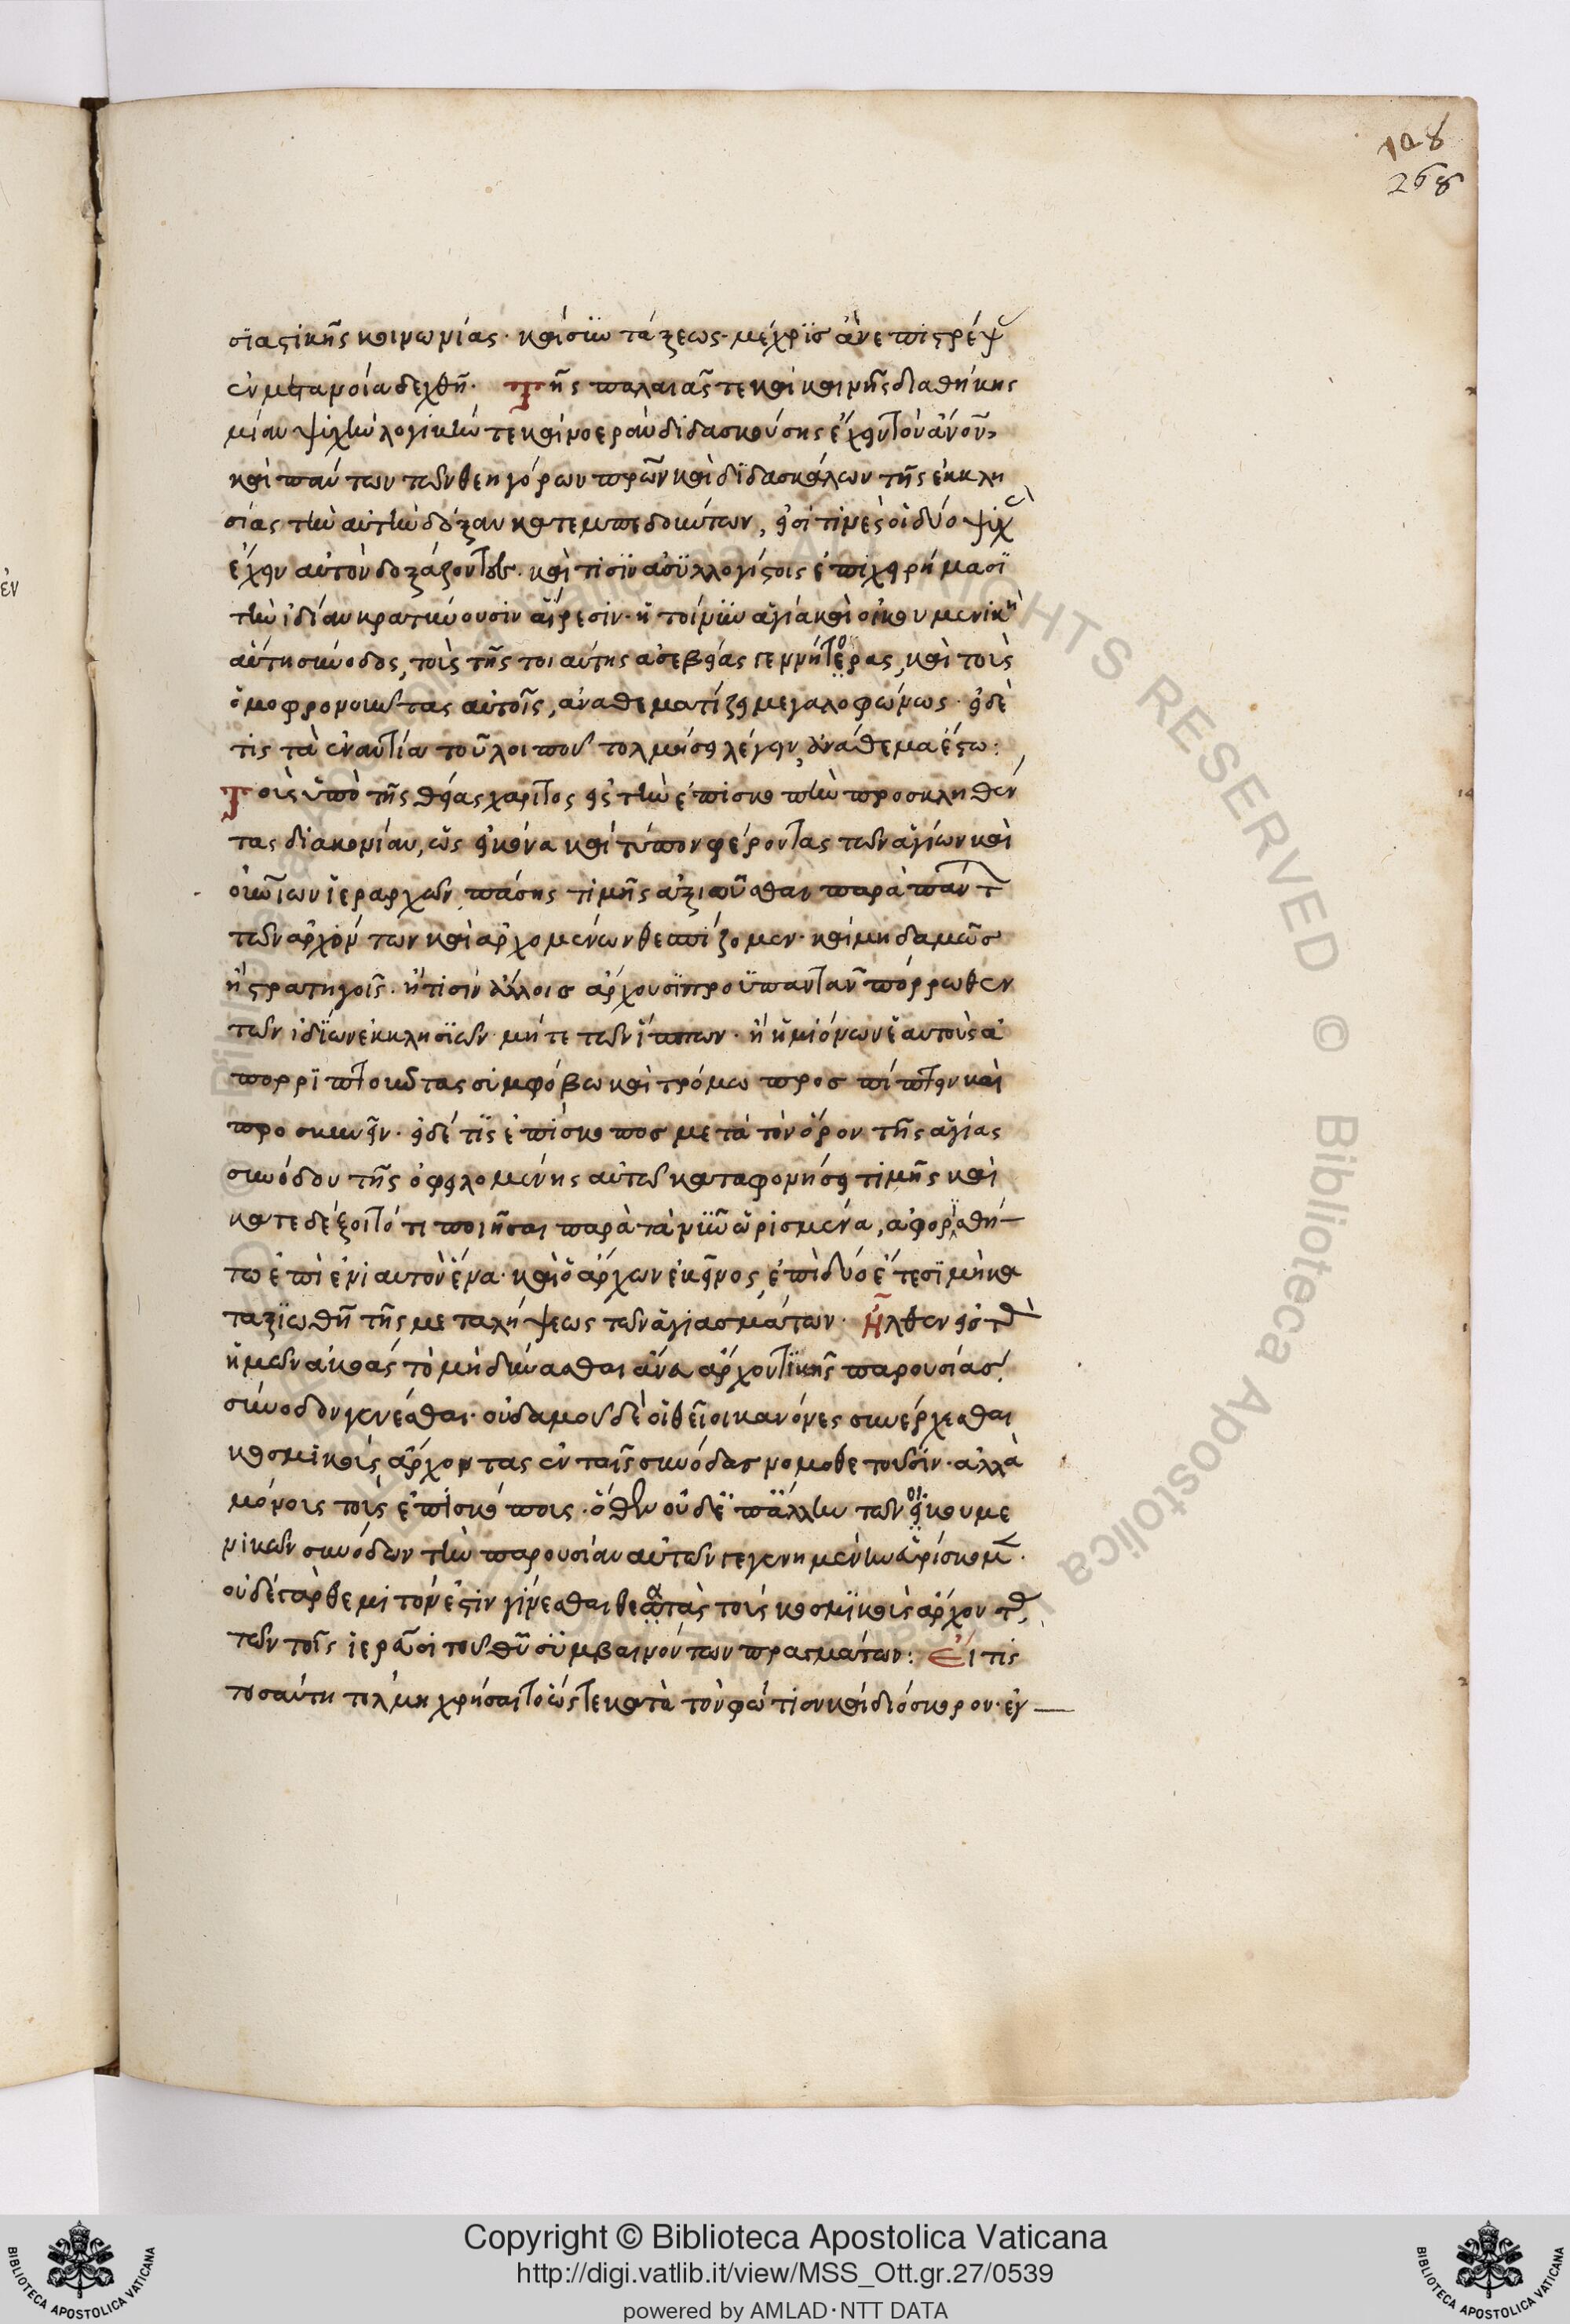 108
268
σϊαστικῆς κοινωνίας· καὶ σϊω τάξεως· μέχρϊσ ἂν ἐπιστρέψ
ἐν μετανοία δεχθῆ· Τῆς παλαιᾶς τε καὶ καινῆς διαθήκης
μίαν ψυχὴν λογικήν τε καὶ νοερὰν διδασκούσης ἔχειν τὸν ἄνον,
καὶ πάντων τῶν θεηγόρων πρῶν καὶ δϊδασκάλων τῆς ἐκκλη
σίας τὴν αὐτὴν δόξαν κατεμπεδούντων, εἰσί τινὲς οἳ δύο ψυχ
ἔχειν αὐτὸν δοξάζοντες· καὶ τισϊν ἀσϋλλογίστοις ἐπιχειρήμασϊ
τὴν ἰδίαν κρατύνουσιν αἵρεσιν· ἡ τοίνϋν ἁγία καὶ οἰκουμενικὴ
αὕτη σύνοδος, τοὺς τῆς τοιαύτης ἀσεβείας γεννήτορας, καὶ τοὺς
ὁμοφρονοῦντας αὐτοῖς, ἀναθεματίζει μεγαλοφώνως· εἰ δὲ
τις τὰ ἐναντία τοῦ λοιποῦ τολμήσει λέγειν, ἀνάθεμα ἔστω:
Τοὺς ὑπὸ τῆς θείας χάριτος εἰς τὴν ἐπισκοπὴν προσκληθέν
τας διακονίαν, ὡς εἰκόνα καὶ τύπον φέροντας τῶν ἁγίων καὶ
οὐνίων ἱεραρχῶν, πάσης τιμῆς ἀξιοῦσθαι παρὰ πάντ
τῶν ἀρχόντων καὶ ἀρχομένων θεσπίζομεν· καὶ μηδαμῶσ
ἢ στρατηγοῖς· ἤ τισιν ἄλλοισ ἄρχουσϊ προϋπαντᾶν πόρρωθεν
τῶν ἰδϊων ἐκκλησϊῶν μήτε τῶν ἵππων· ἢ ἡμιόνων ἑαυτοὺς ἀ
πορρϊπτοῦντας σὺμφόβω καὶ τρόμω προσπίπτειν καὶ
προσκυνεῖν· εἰ δέ τϊς ἐπίσκοποσ μετὰ τὸν ὅρον τῆς ἁγίας
συνόδου τῆς ὀφειλομένης αὐτῶ καταφρονήσει τιμῆς καὶ
καταδέξοιτό τι ποιῆσαι παρὰ τὰ νϋν ὡρισμένα, ἀφορϊσθή
τω ἐπὶ ἐνιαυτὸν ἕνα· καὶ ὁ ἄρχων ἐκεῖνος, ἐπὶ δυό ἔτεσϊ μὴ κα
ταξϊωθῆ τῆς μεταλήψεως τῶν ἁγιασμάτων· Ἦλθεν εἰσ τὰς
ἡμῶν ἀκοάς τὸ μὴ δύνασθαι ἄνευ ἀρχοντϊκῆς παρουσίασ
σύνοδον γενέσθαι· οὐδαμοῦ δὲ οἱ θεῖοι κανόνες συνέρχεσθαι
κοσμικοὺς ἄρχοντας ἐν ταῖς συνόδοις νομοθετοῦσιν· ἀλλὰ
μόνοις τοὺς ἐπισκόποις· ὅθεν οὐδὲ πάλλιν τῶν οἰκουμε
νικῶν συνόδων τὴν παρουσίαν αὐτῶν γεγενημένην εὑρίσκομ·
οὐδέ γάρ θεμιτόν ἐστιν γίνεσθαι θεατὰς τοὺς κοσμϊκοὺς ἄρχοντας,
τῶν τοῖς ἱερεῦσι τοῦ θῦ σϋμβαινόντων πραγμάτων: Εἴ τις
τοσαύτη τόλμη χρήσαιτο ὥστε κατὰ τὸν φώτιον καὶ διόσκορον· ἐγ
ἐν
Copyright © Biblioteca Apostolica Vaticana
http://digi.vatlib.it/view/MSS_Ott.gr.27/0539
powered by AMLAD·NTT DATA